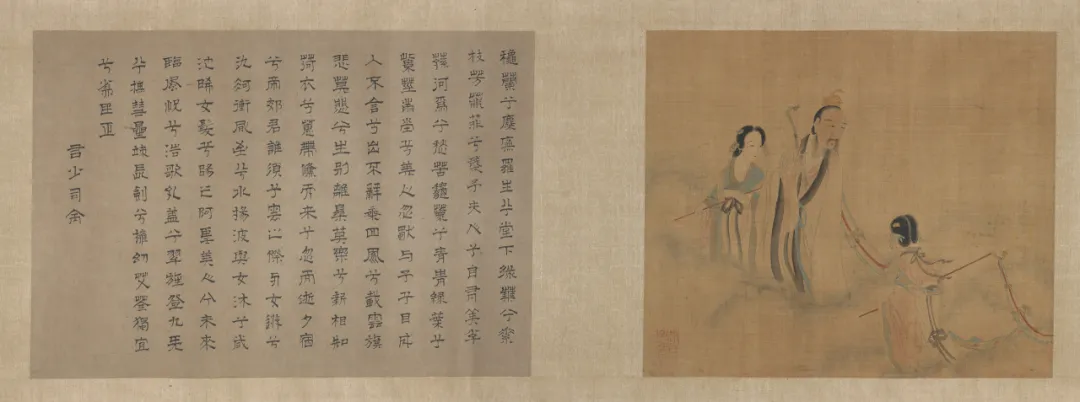 穐蘭兮麋蕪羅生兮堂下綠葉兮素
枝芳菲菲兮襲予夫人兮自有美子
蓀何為兮愁苦穐蘭兮青青綠葉兮
紫莖滿堂兮美人忽獨與予兮目成
入不言兮出不辭乘回風兮載雲旗
悲莫悲兮生別離樂莫樂兮新相知
荷衣兮蕙帶儵而來兮忽而逝夕宿
兮帝郊君誰須兮雲之際與女游兮
九河衝風至兮水揚波與女沐兮咸
池晞女髮兮陽之阿望美人兮未來
臨風怳兮浩歌孔蓋兮翠旌登九天
兮撫彗星竦長劍兮擁幼艾蓀獨宜
兮為民正
右少司命